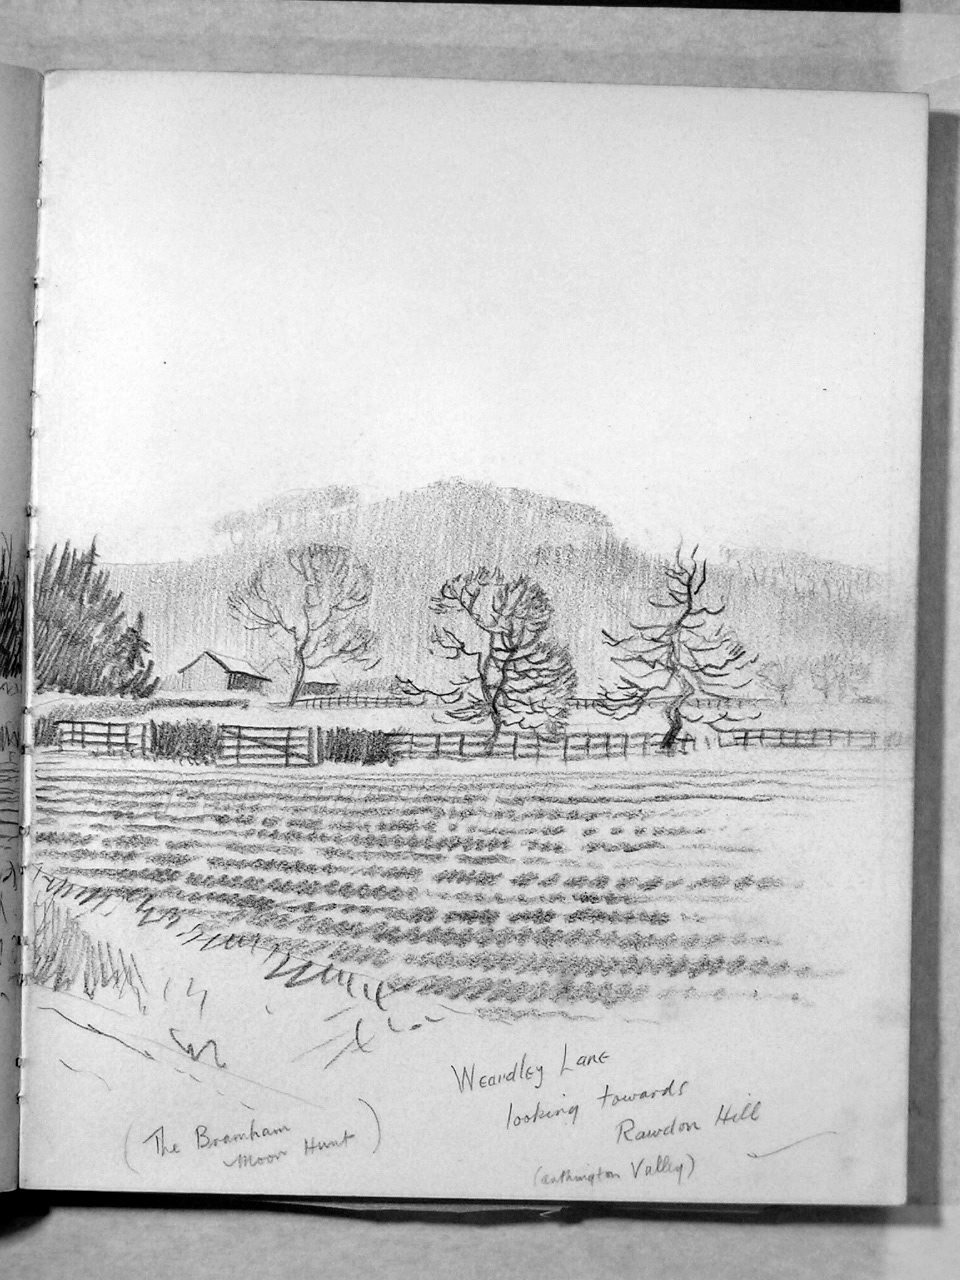 Weardley Lane
looking towards
Rawdon Hill
(arthington Valley)
(The Bramham
Moor Hunt)